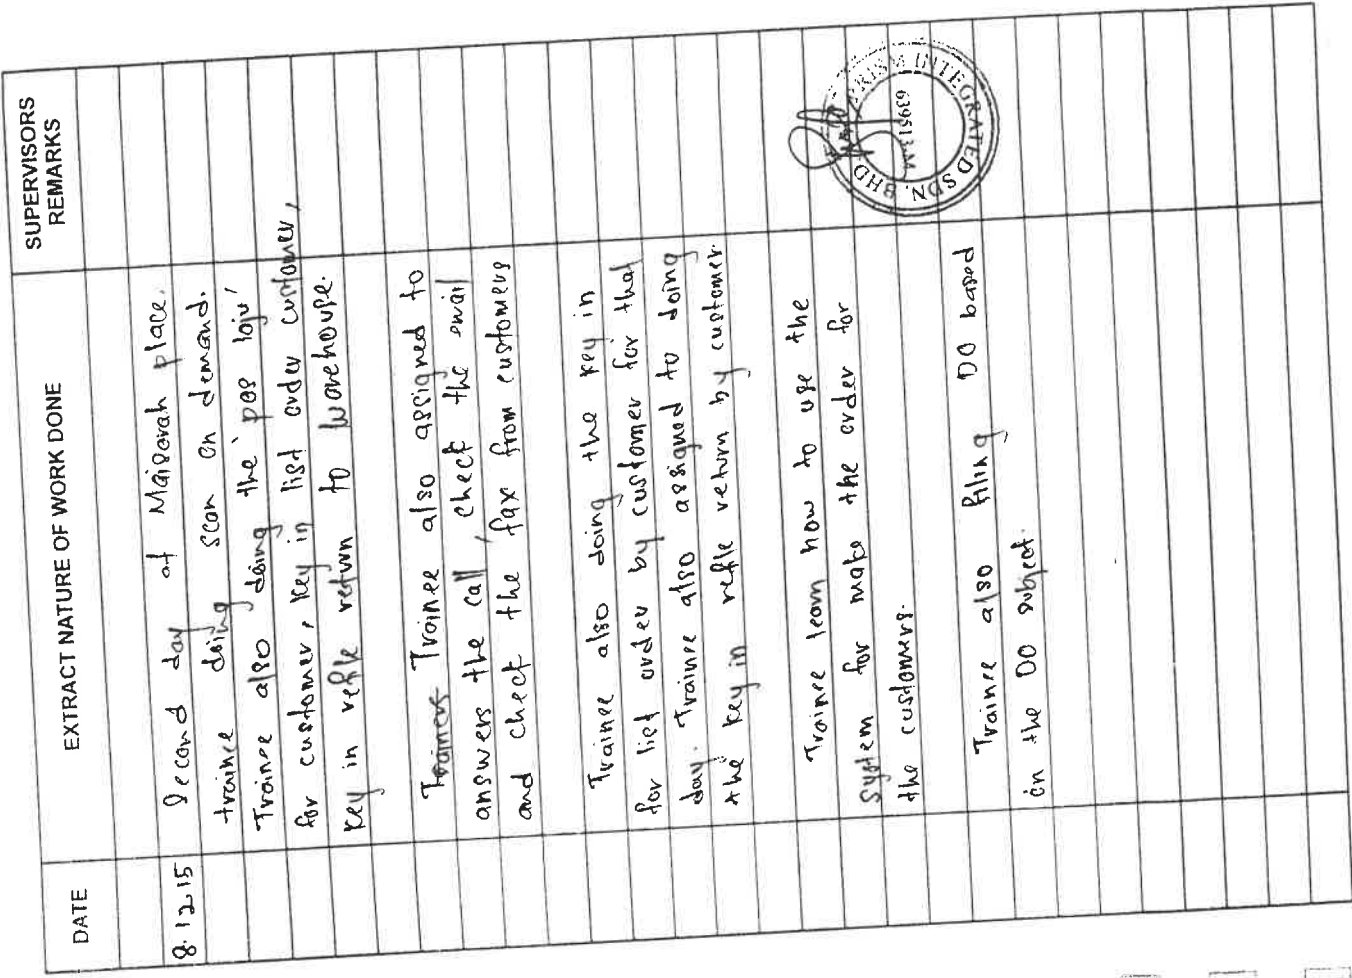 DATE
EXTRACT NATURE OF WORK DONE
SUPERVISORS
REMARKS
8.12.15
Second day at Maisarah place.
trainee doing scan on demand.
Trainee also doing the 'pos laju'
for customer, key in list order customer,
key in refile return to warehouse.
Trainers Trainee also assigned to
answers the call, check the email
and check the fax from customers
Trainee also doing the key in
for list order by customer for that
day. Trainee also assigned to doing
the key in refile return by customer.
Trainee learn how to use the
system for make the order for
the customers.
Trainee also filing DO based
on the DO subject.
PRISM INTEGRATED SDN. BHD